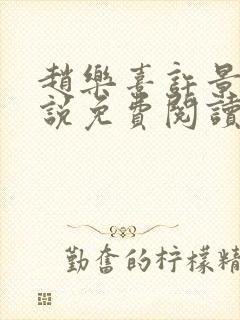 趙樂喜許景
說免費閱讀
勤奮的柠檬精